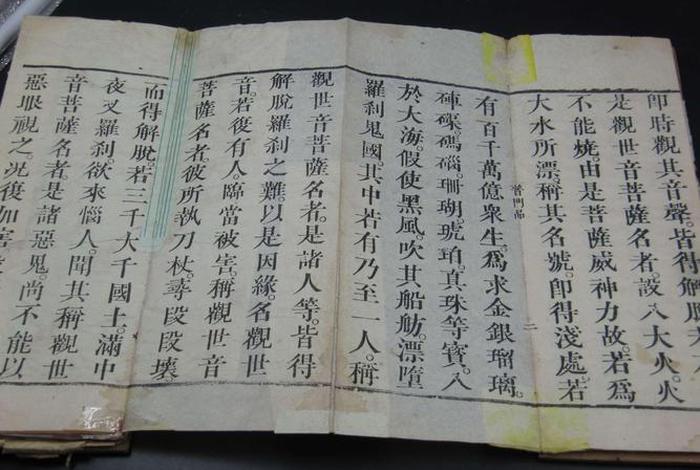 即時觀其音聲。皆得解脫。
是觀世音菩薩名者。設入大火。火
不能燒。由是菩薩威神力故。若爲
大水所漂。稱其名號。卽得淺處。若
普門品
二
有百千萬億衆生。爲求金銀瑠璃。
硨磲。碼瑙。珊瑚。琥珀。真珠等寶。入
於大海。假使黑風。吹其船舫。漂墮
羅刹鬼國。其中若有乃至一人。稱
觀世音菩薩名者。是諸人等。皆得
解脫羅刹之難。以是因緣。名觀世
音。若復有人。臨當被害。稱觀世音
菩薩名者。彼所執刀杖。尋段段壞。
而得解脫。若三千大千國土。滿中
夜叉羅刹。欲來惱人。聞其稱觀世
音菩薩名者。是諸惡鬼。尚不能以
惡眼視之。況復加害